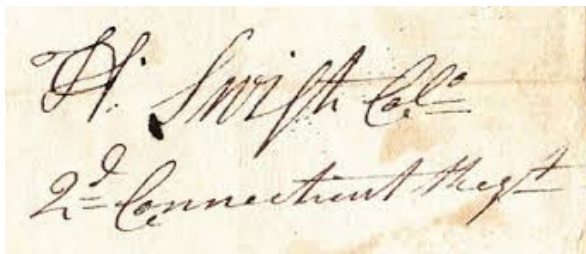 H. Swift Colo
2d Connecticut Regt